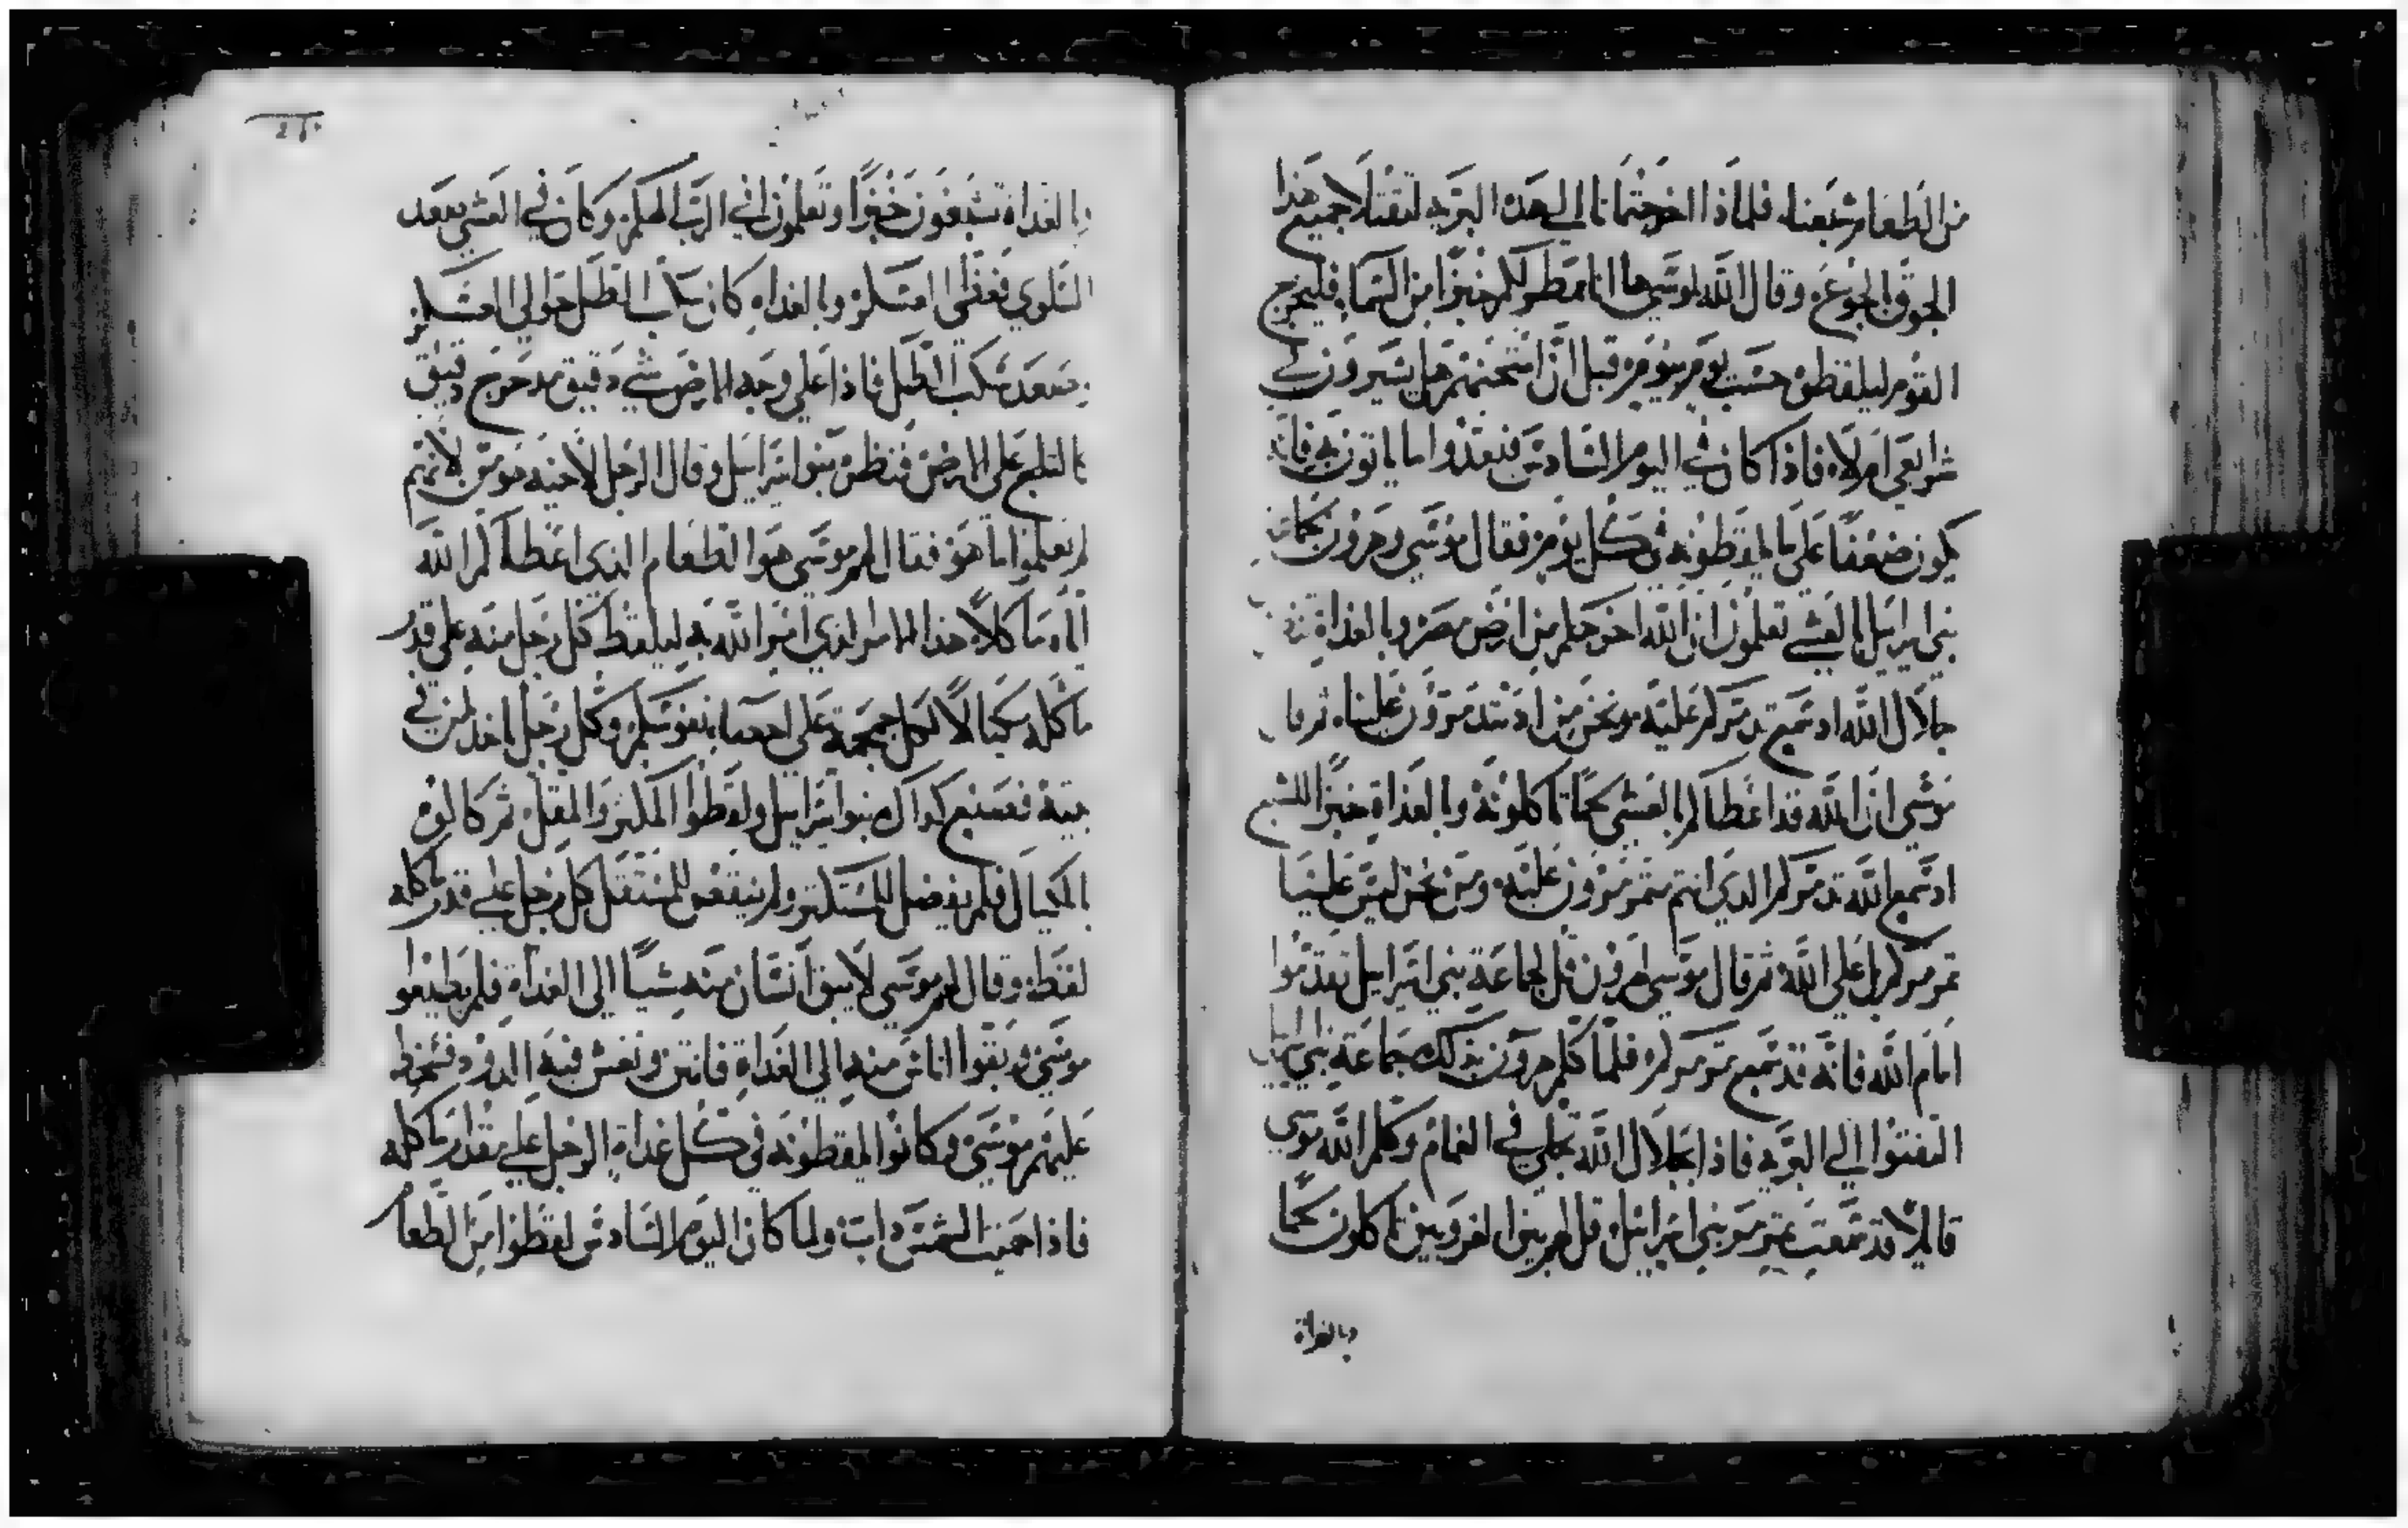 من الطعام شبعنا، فلماذا اخرجتمانا الى هذه البريه لتقتلا جميع هذا
الجوق بالجوع، وقال الله لموسى ها انا ممطر لكم خبزًا من السماء فليخرج
القوم ليلقطون حسب يوم بيوم من قبل ان امتحنهم هل يسيرون في
شرايعي ام لا، فاذا كان في اليوم السادس فيعدوا ما ياتون به فانه
يكون ضعفًا على ما يلقطونه في كل يوم فقال موسى وهرون
بني اسرايل بالعشي تعلمون ان الله اخرجكم من ارض مصر وبالغداة
جلال الله اذ سمع تدمركم عليه ونحن من اذ تتدمرون علينا، ثم قال
موسى ان الله قد اعطاكم بالعشي لحمًا تاكلونه وبالغداة خبزًا للشبع
اذ سمع الله تدمركم الدي انتم متمرمرون عليه، ومن نحن ليس علينا
تمرمركم بل على الله ثم قال موسى لهرون قل لجماعة بني اسرايل تقدموا
امام الله فانه قد سمع تمرمركم فلما كلم هرون بذلك جماعة بني اسرايل
التفتوا الى البريه فاذا بجلال الله تجلى في الغمام وكلم الله موسى
قايلًا قد سمعت تمرمر بني اسراييل قل لهم بين الغروبين تاكلون لحما
وبالغداة
بالغداة تشبعون خبزًا وتعلمون اني الرب الهكم وكان في العشي صعد
السلوي فغطى العسكر وبالغداه كان سكب الطل حوالي العسكر
فصعد سكب الطل فاذا على وجه الارض شي دقيق مدحرج دقيق
كالثلج على الارض فنظر بنوا اسراييل وقال الرجل لاخيه هو من لانهم
لم يعلموا ما هو فقال لهم موسى هو الطعام الذي اعطاكم الله
اياه ماكلًا هذا الامر الذي امر الله به ليلقط كل رجل منه على قدر
ماكله مكيالًا لكل جمجمة على احصا نفوسكم وكل رجل ياخذ لمن في
بيته فصنع كذلك بنوا اسراييل ولقطوا المكثر والمقل ثم كالوه
بالمكيال فلم يفضل للمستكثر ولم ينقص للمستقل كل رجل على قدر ماكله
لقطه وقال لهم موسى لا يبق انسان منه شيًا الى الغداة فلم يطيعو
موسى وبقوا اناس منه الى الغداة فانتن ونعش فيه الدود فسخط
عليهم موسى وكانوا يلقطونه في كل غداة الرجل على مقدار ماكله
فاذا احميت الشمس داب ولما كان اليوم السادس لقطوا من الطعام